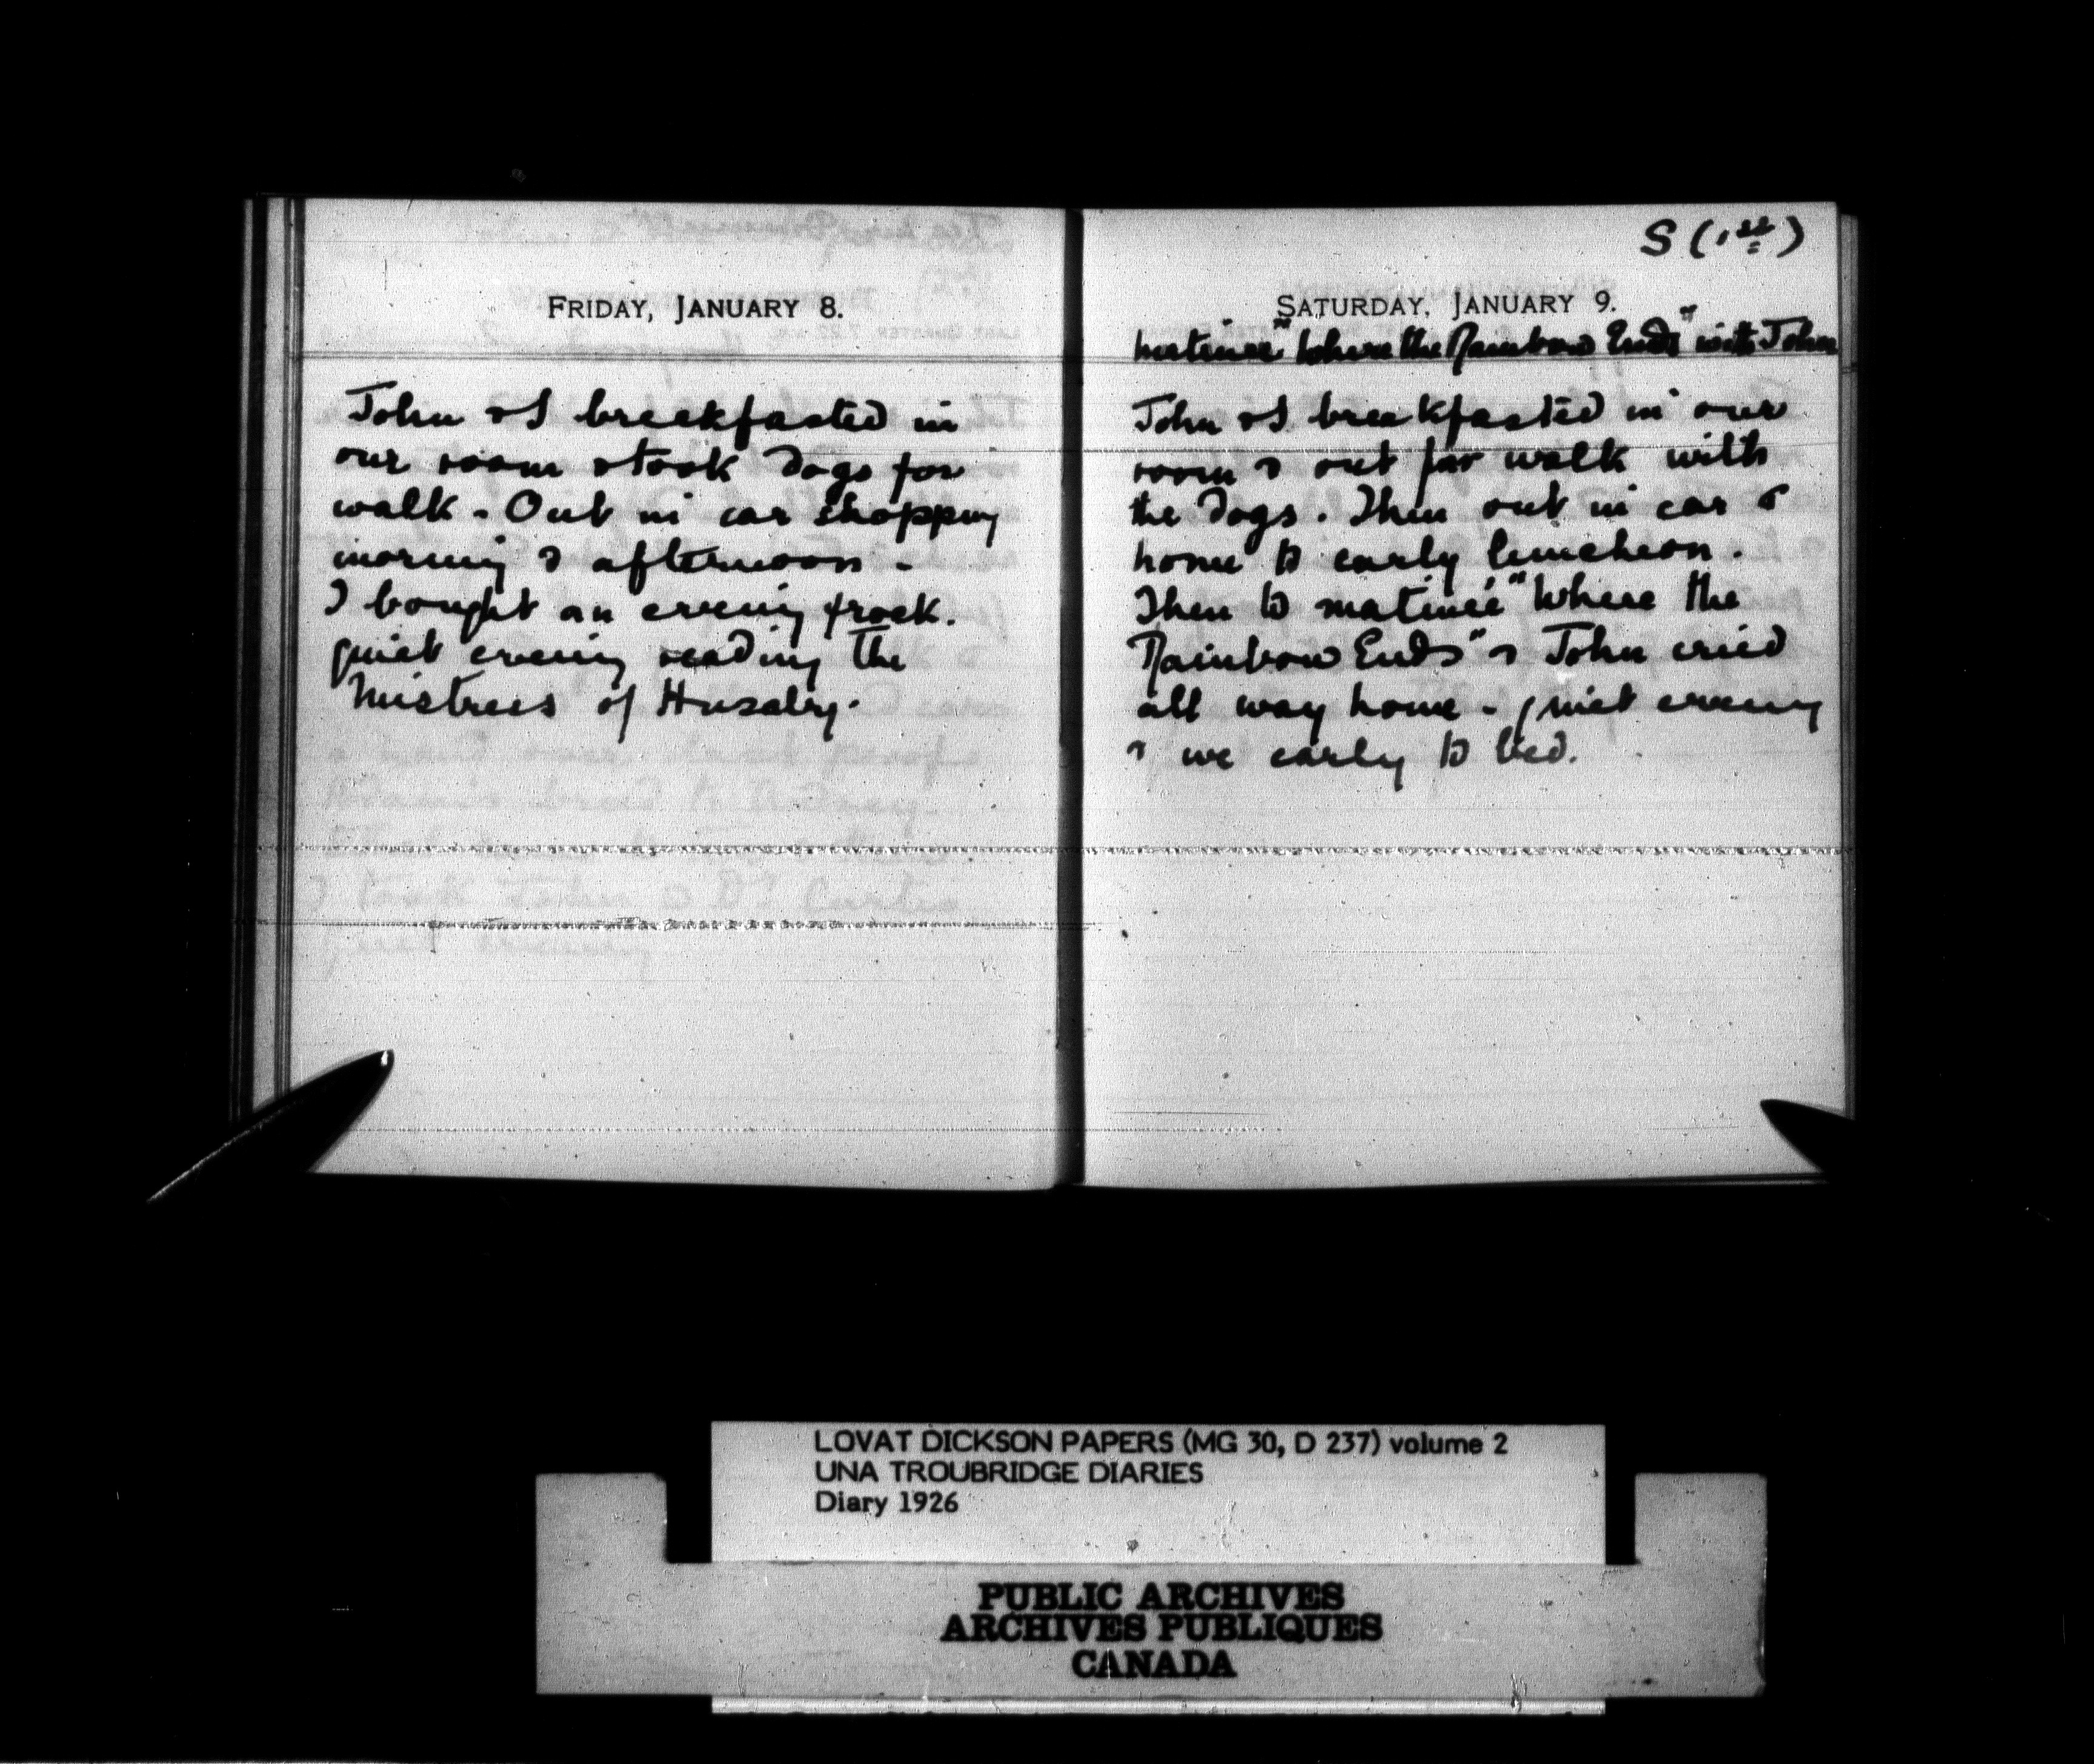 FRIDAY, JANUARY 8.
John & I breakfasted in
our room & took dogs for
walk - Out in car shopping
morning & afternoon -
I bought an evening frock.
quiet evening reading the
Mistress of Husaby.
S (1st)
SATURDAY, JANUARY 9.
Matinee "Where the Rainbow Ends" with John
John & I breakfasted in our
room & out for walk with
the dogs. Then out in car &
home to early luncheon.
Then to matineé "Where the
Rainbow Ends" & John cried
all way home - quiet evening
& we early to bed.
LOVAT DICKSON PAPERS (MG 30, D 237) volume 2
UNA TROUBRIDGE DIARIES
Diary 1926
PUBLIC ARCHIVES
ARCHIVES PUBLIQUES
CANADA